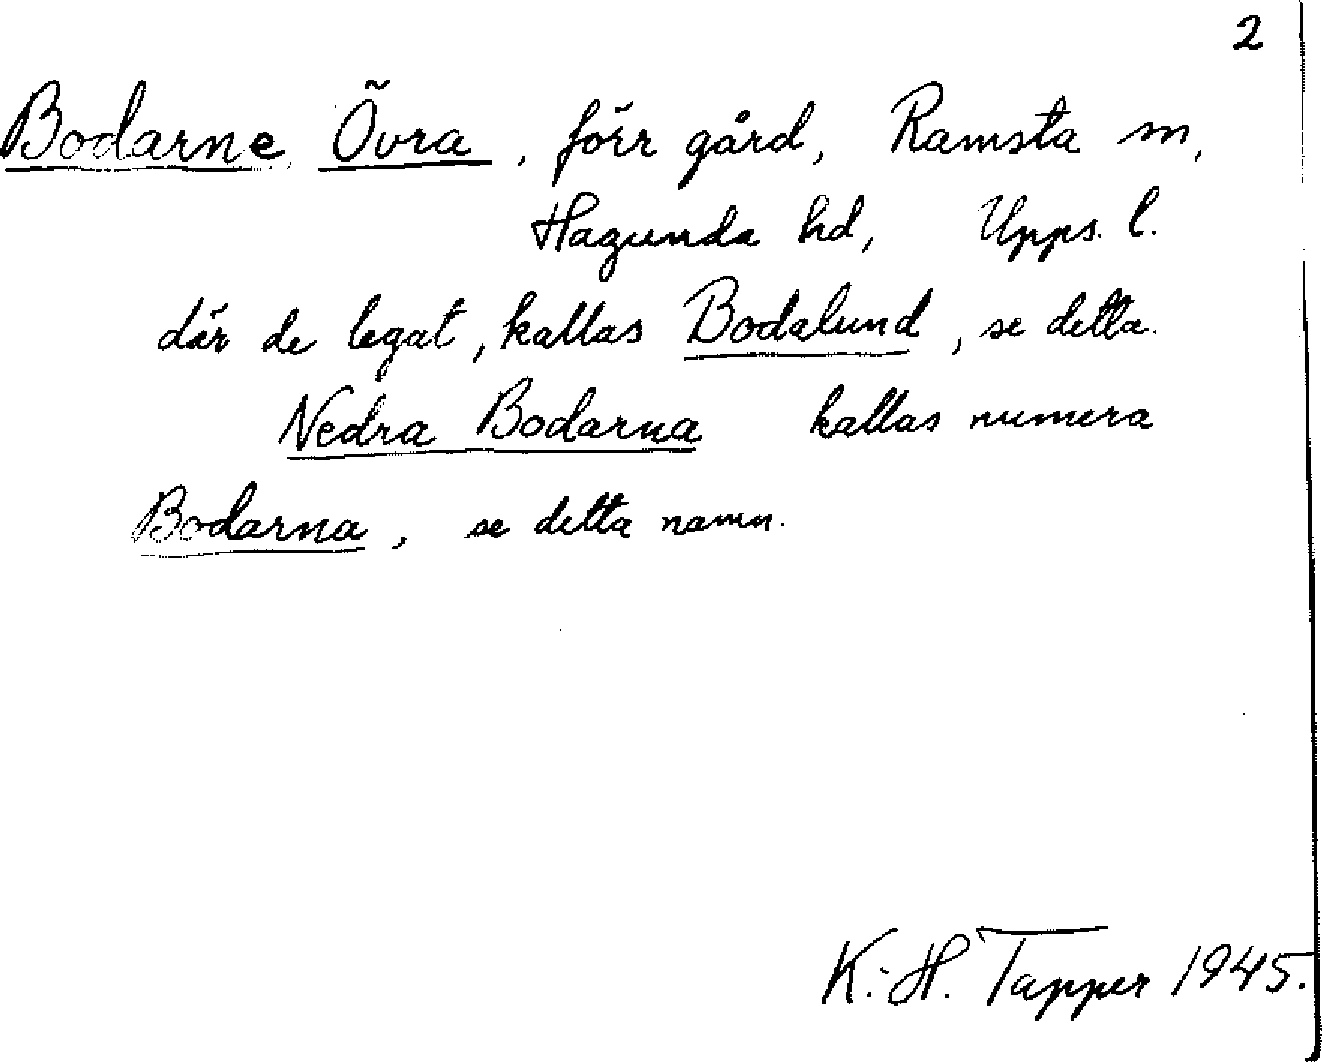 2
Bodarne, Övra, förr gård, Ramsta sn,
Hagunda hd, Upps. l.
där de legat, kallas Bodalund, se detta.
Nedra Bodarna kallas numera
Bodarna, se detta namn.
K.-H. Tapper 1945.